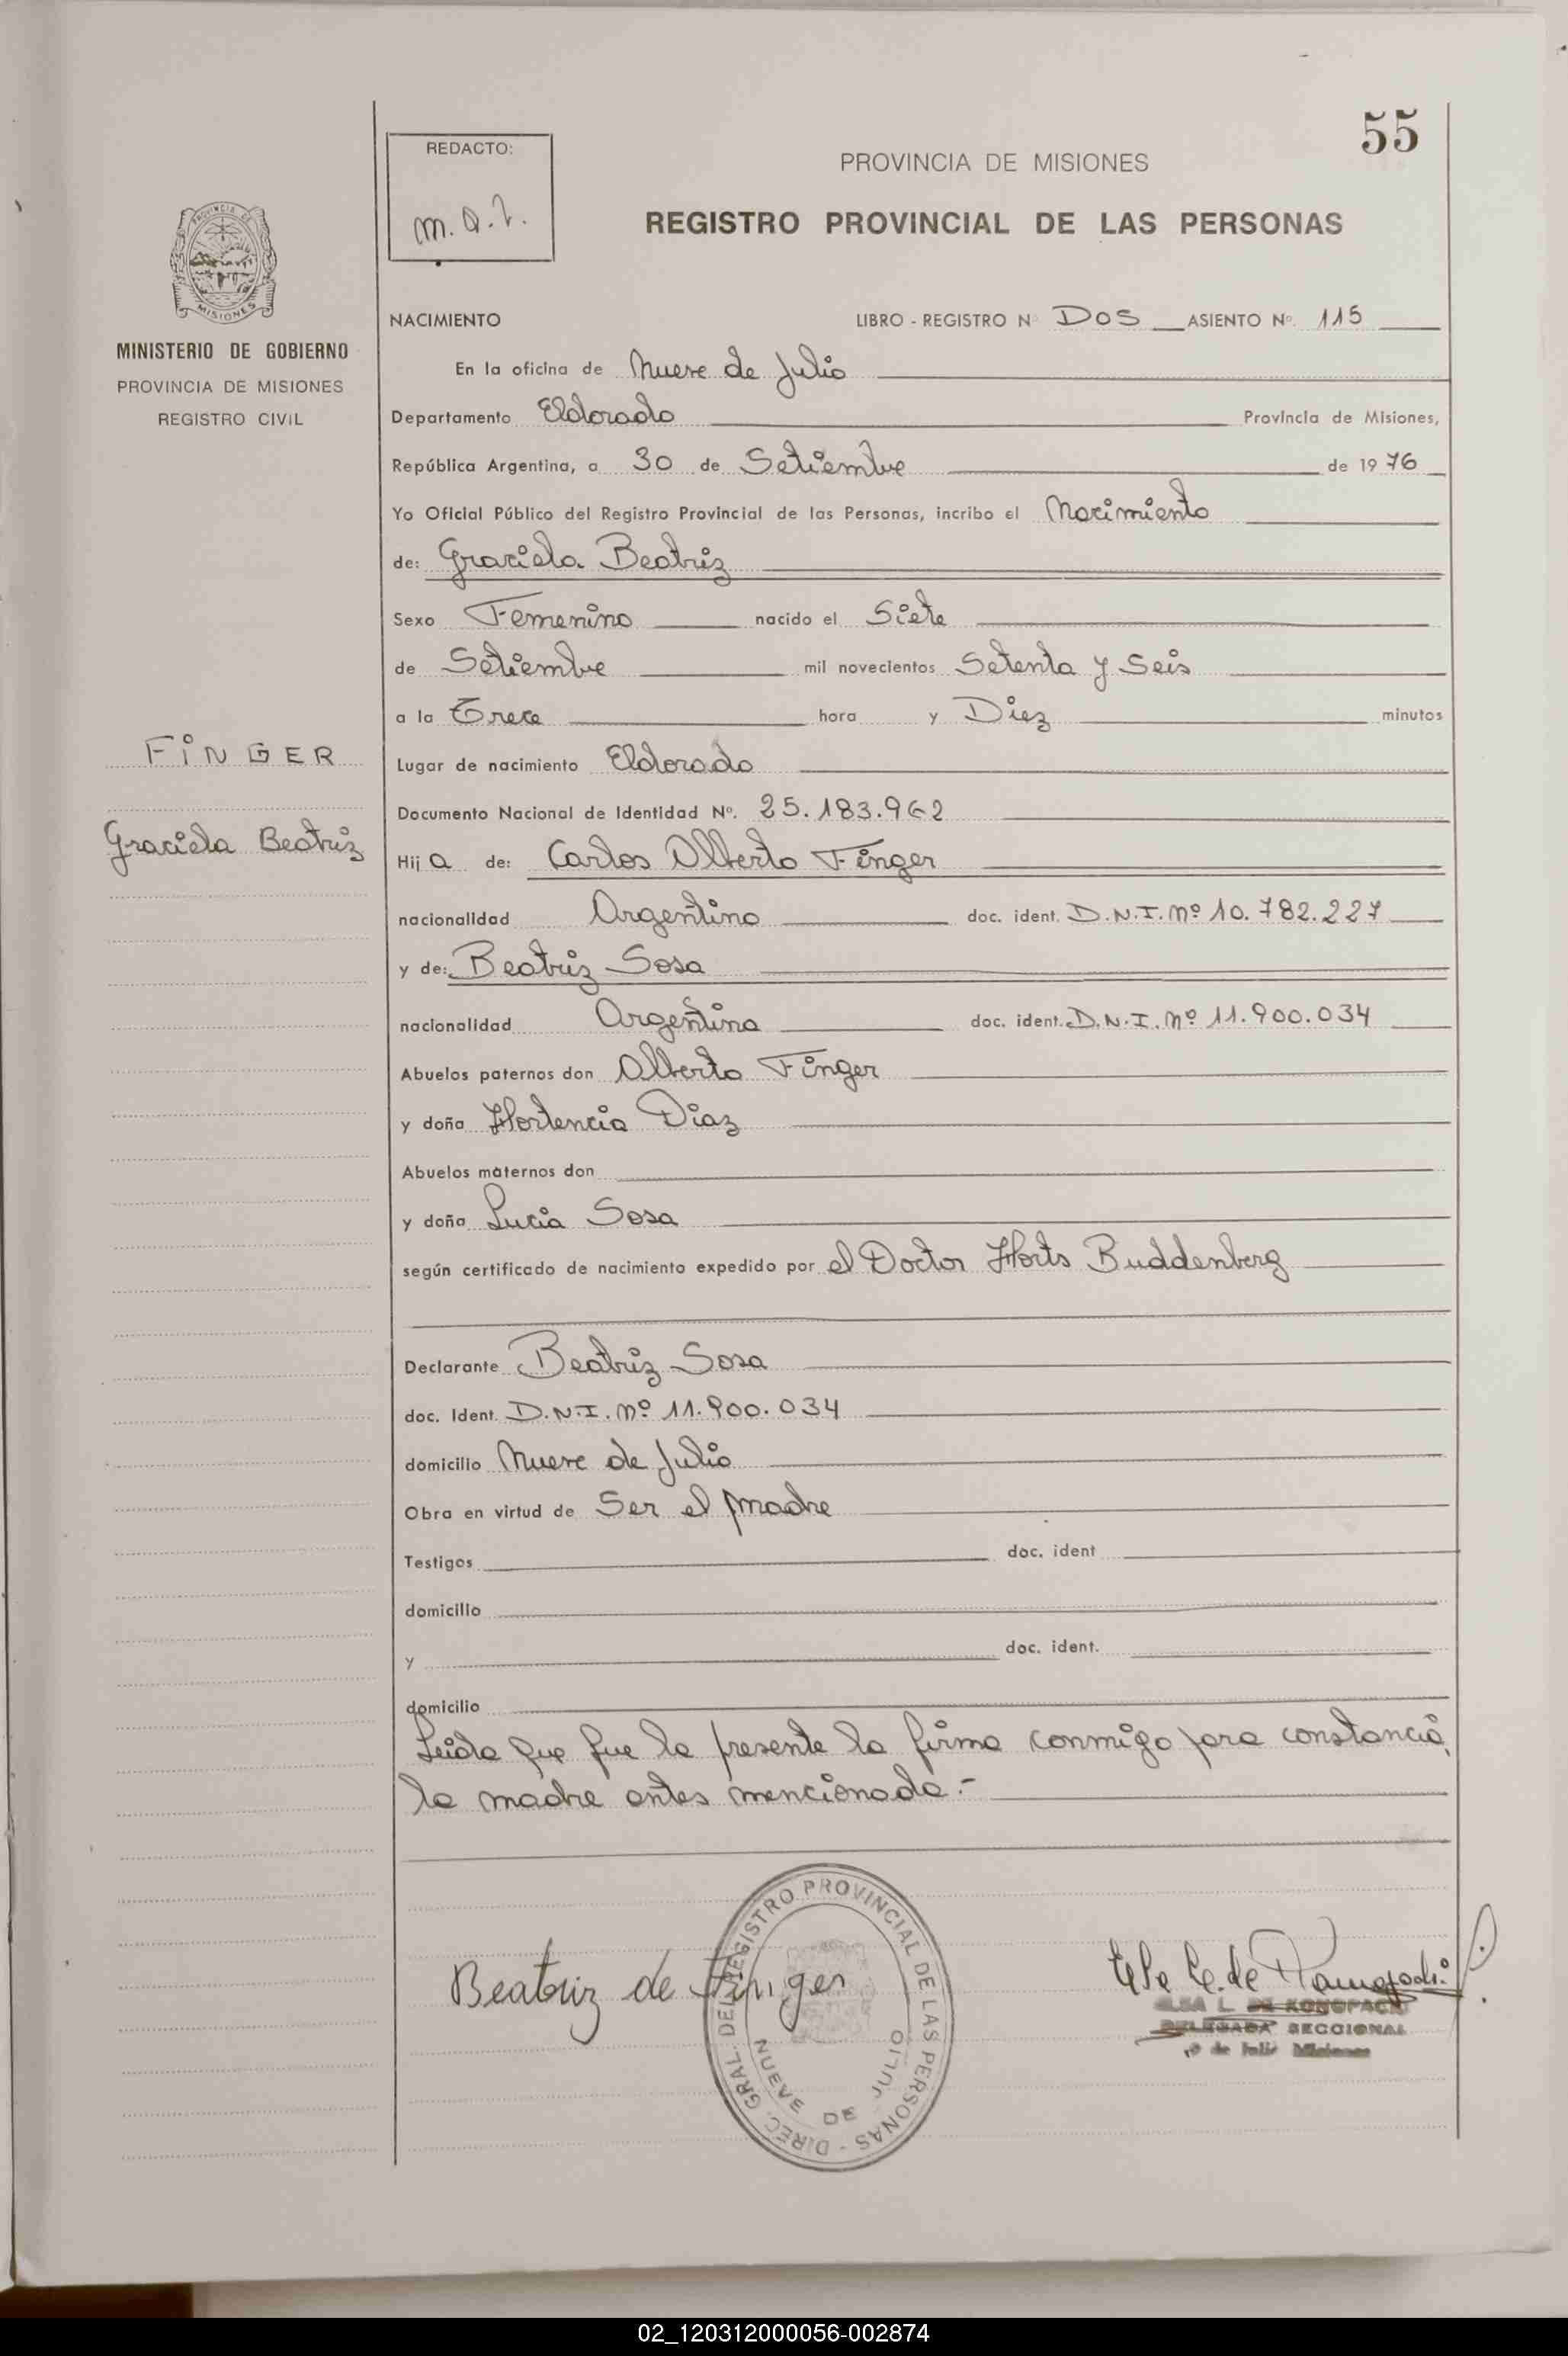 55
REDACTO:
m.a.r.
PROVINCIA DE MISIONES
REGISTRO PROVINCIAL DE LAS PERSONAS
PROVINCIA DE
MISIONES
MINISTERIO DE GOBIERNO
PROVINCIA DE MISIONES
REGISTRO CIVIL
NACIMIENTO LIBRO - REGISTRO Nº DOS ASIENTO Nº. 115
En la oficina de Nueve de Julio
Departamento Eldorado Provincia de Misiones,
República Argentina, a 30 de Setiembre de 1976
Yo Oficial Público del Registro Provincial de las Personas, incribo el Nacimiento
de: Graciela Beatriz
Sexo Femenino nacido el Siete
de Setiembre mil novecientos Setenta y Seis
a la Trece hora y Diez minutos
FINGER
Graciela Beatriz
Lugar de nacimiento Eldorado
Documento Nacional de Identidad Nº. 25.183.962
Hija de: Carlos Alberto Finger
nacionalidad Argentino doc. ident. D.N.I. Nº 10.782.227
y de: Beatriz Sosa
nacionalidad Argentina doc. ident. D.N.I. Nº 11.900.034
Abuelos paternos don Alberto Finger
y doña Hortencia Diaz
Abuelos maternos don
y doña Lucia Sosa
según certificado de nacimiento expedido por el Doctor Horts Buddenberg
Declarante Beatriz Sosa
doc. Ident. D.N.I. Nº 11.900.034
domicilio Nueve de Julio
Obra en virtud de Ser el madre
Testigos doc. ident
domicilio
y doc. ident.
domicilio
Leida que fue la presente la firma conmigo para constancia,
la madre antes mencionada.-
Beatriz de Finger
DIREC. GRAL. DEL REGISTRO PROVINCIAL DE LAS PERSONAS -
NUEVE DE JULIO
ELSA L. DE KONOPACKI
DELEGADA SECCIONAL
9 de Julio Misiones
02_120312000056-002874